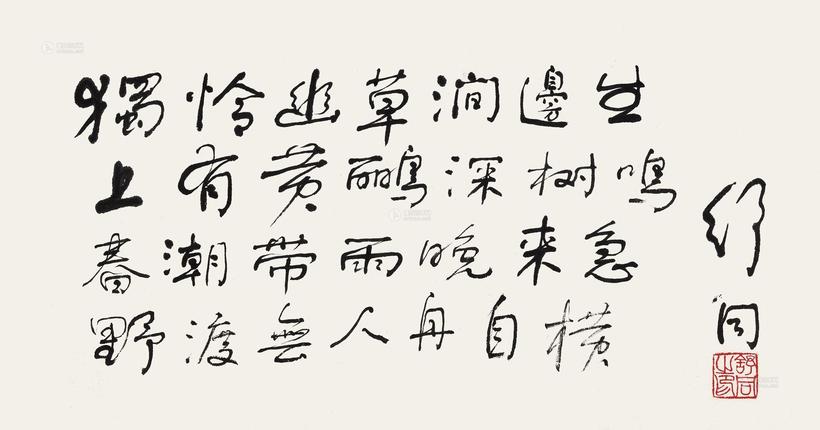 獨憐幽草澗邊生
上有黄鹂深树鸣
春潮帶雨晚来急
野渡無人舟自横
舒同
舒同之印